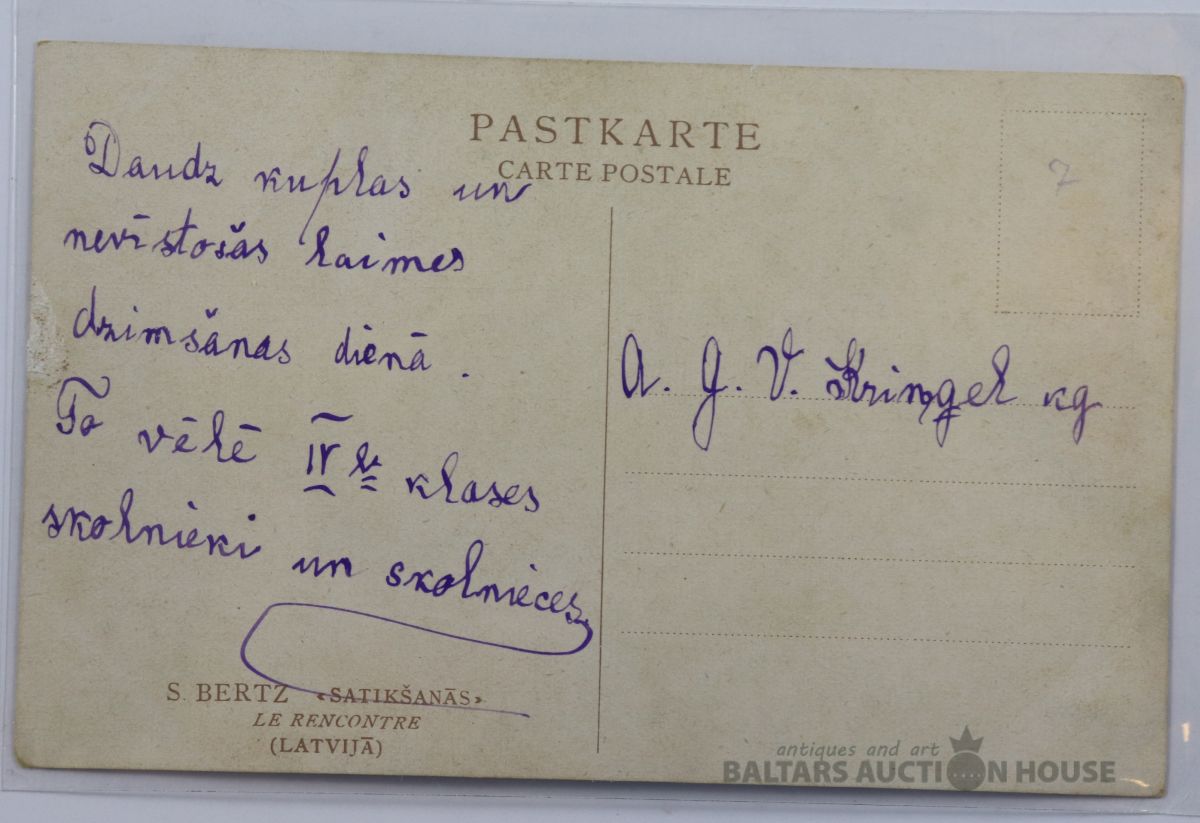 PASTKARTE
CARTE POSTALE
7
Daudz kuplas un
nevīstošas laimes
dzimšanas dienā.
To vēlē IV kl. klases
skolnieki un skolnieces
A. J. V. Kringel kg
S. BERTZ «SATIKŠANĀS»
LE RENCONTRE
(LATVIJĀ)
antiques and art
BALTARS AUCTION HOUSE